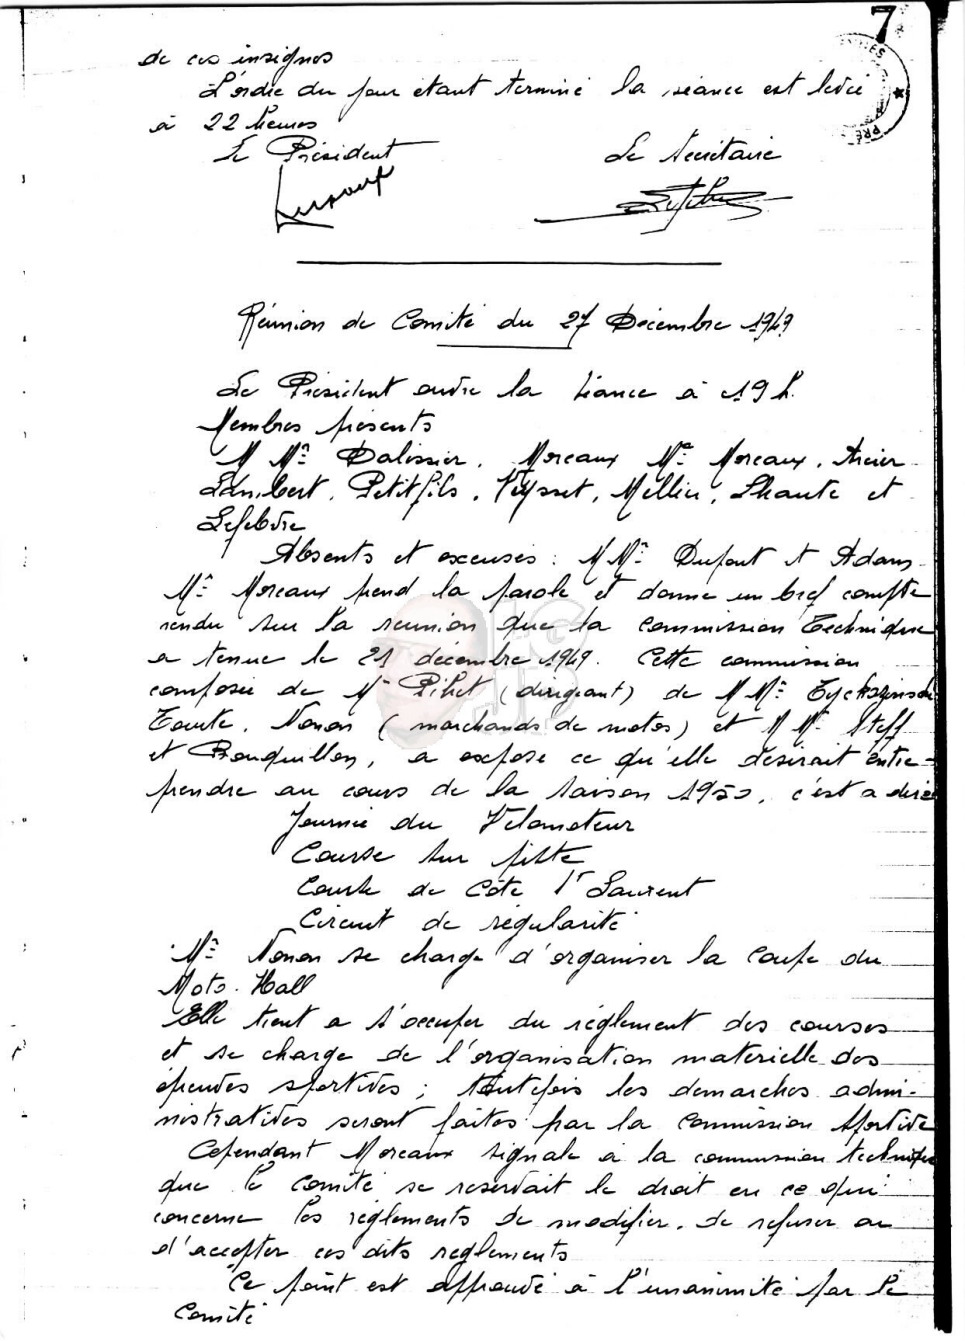 7
de ces insignes
L'ordre du jour étant terminé la séance est levée
à 22 heures
Le Président
Le Secrétaire
Réunion de Comité du 27 Décembre 1949
Le Président ouvre la séance à 19 h.
Membres présents
M Mrs Dalissier, Moreaux Me Moreaux,
Lambert, Petitfils, Veysset, Mellier, Lhante et
Lefebvre
Absents et excusés : M Mrs Dupont et Adam
Mr Moreaux prend la parole et donne un bref compte
rendu sur la réunion que la commission Technique
a tenue le 21 décembre 1949. Cette commission
composée de Mr Pihet (dirigeant) de M Mrs
Toute, Nonon (marchands de motos) et M Mrs Steff
et Bouquillon, a exposé ce qu'elle désirait entre-
prendre au cours de la saison 1950, c'est a dire
Journée du Vélomoteur
Course sur piste
Course de Côte St Laurent
Circuit de régularité
Mr Nonon se charge d'organiser la coupe du
Moto-Hall
Elle tient a s'occuper du réglement des courses
et se charge de l'organisation matérielle des
épreuves sportives ; toutefois les démarches admi-
nistratives seront faites par la commission sportive
Cependant Moreaux signale à la commission technique
que le comité se reservait le droit en ce qui
concerne les réglements de modifier, de refuser ou
d'accepter ces dits reglements
Ce point est approuvé à l'unanimité par le
Comité